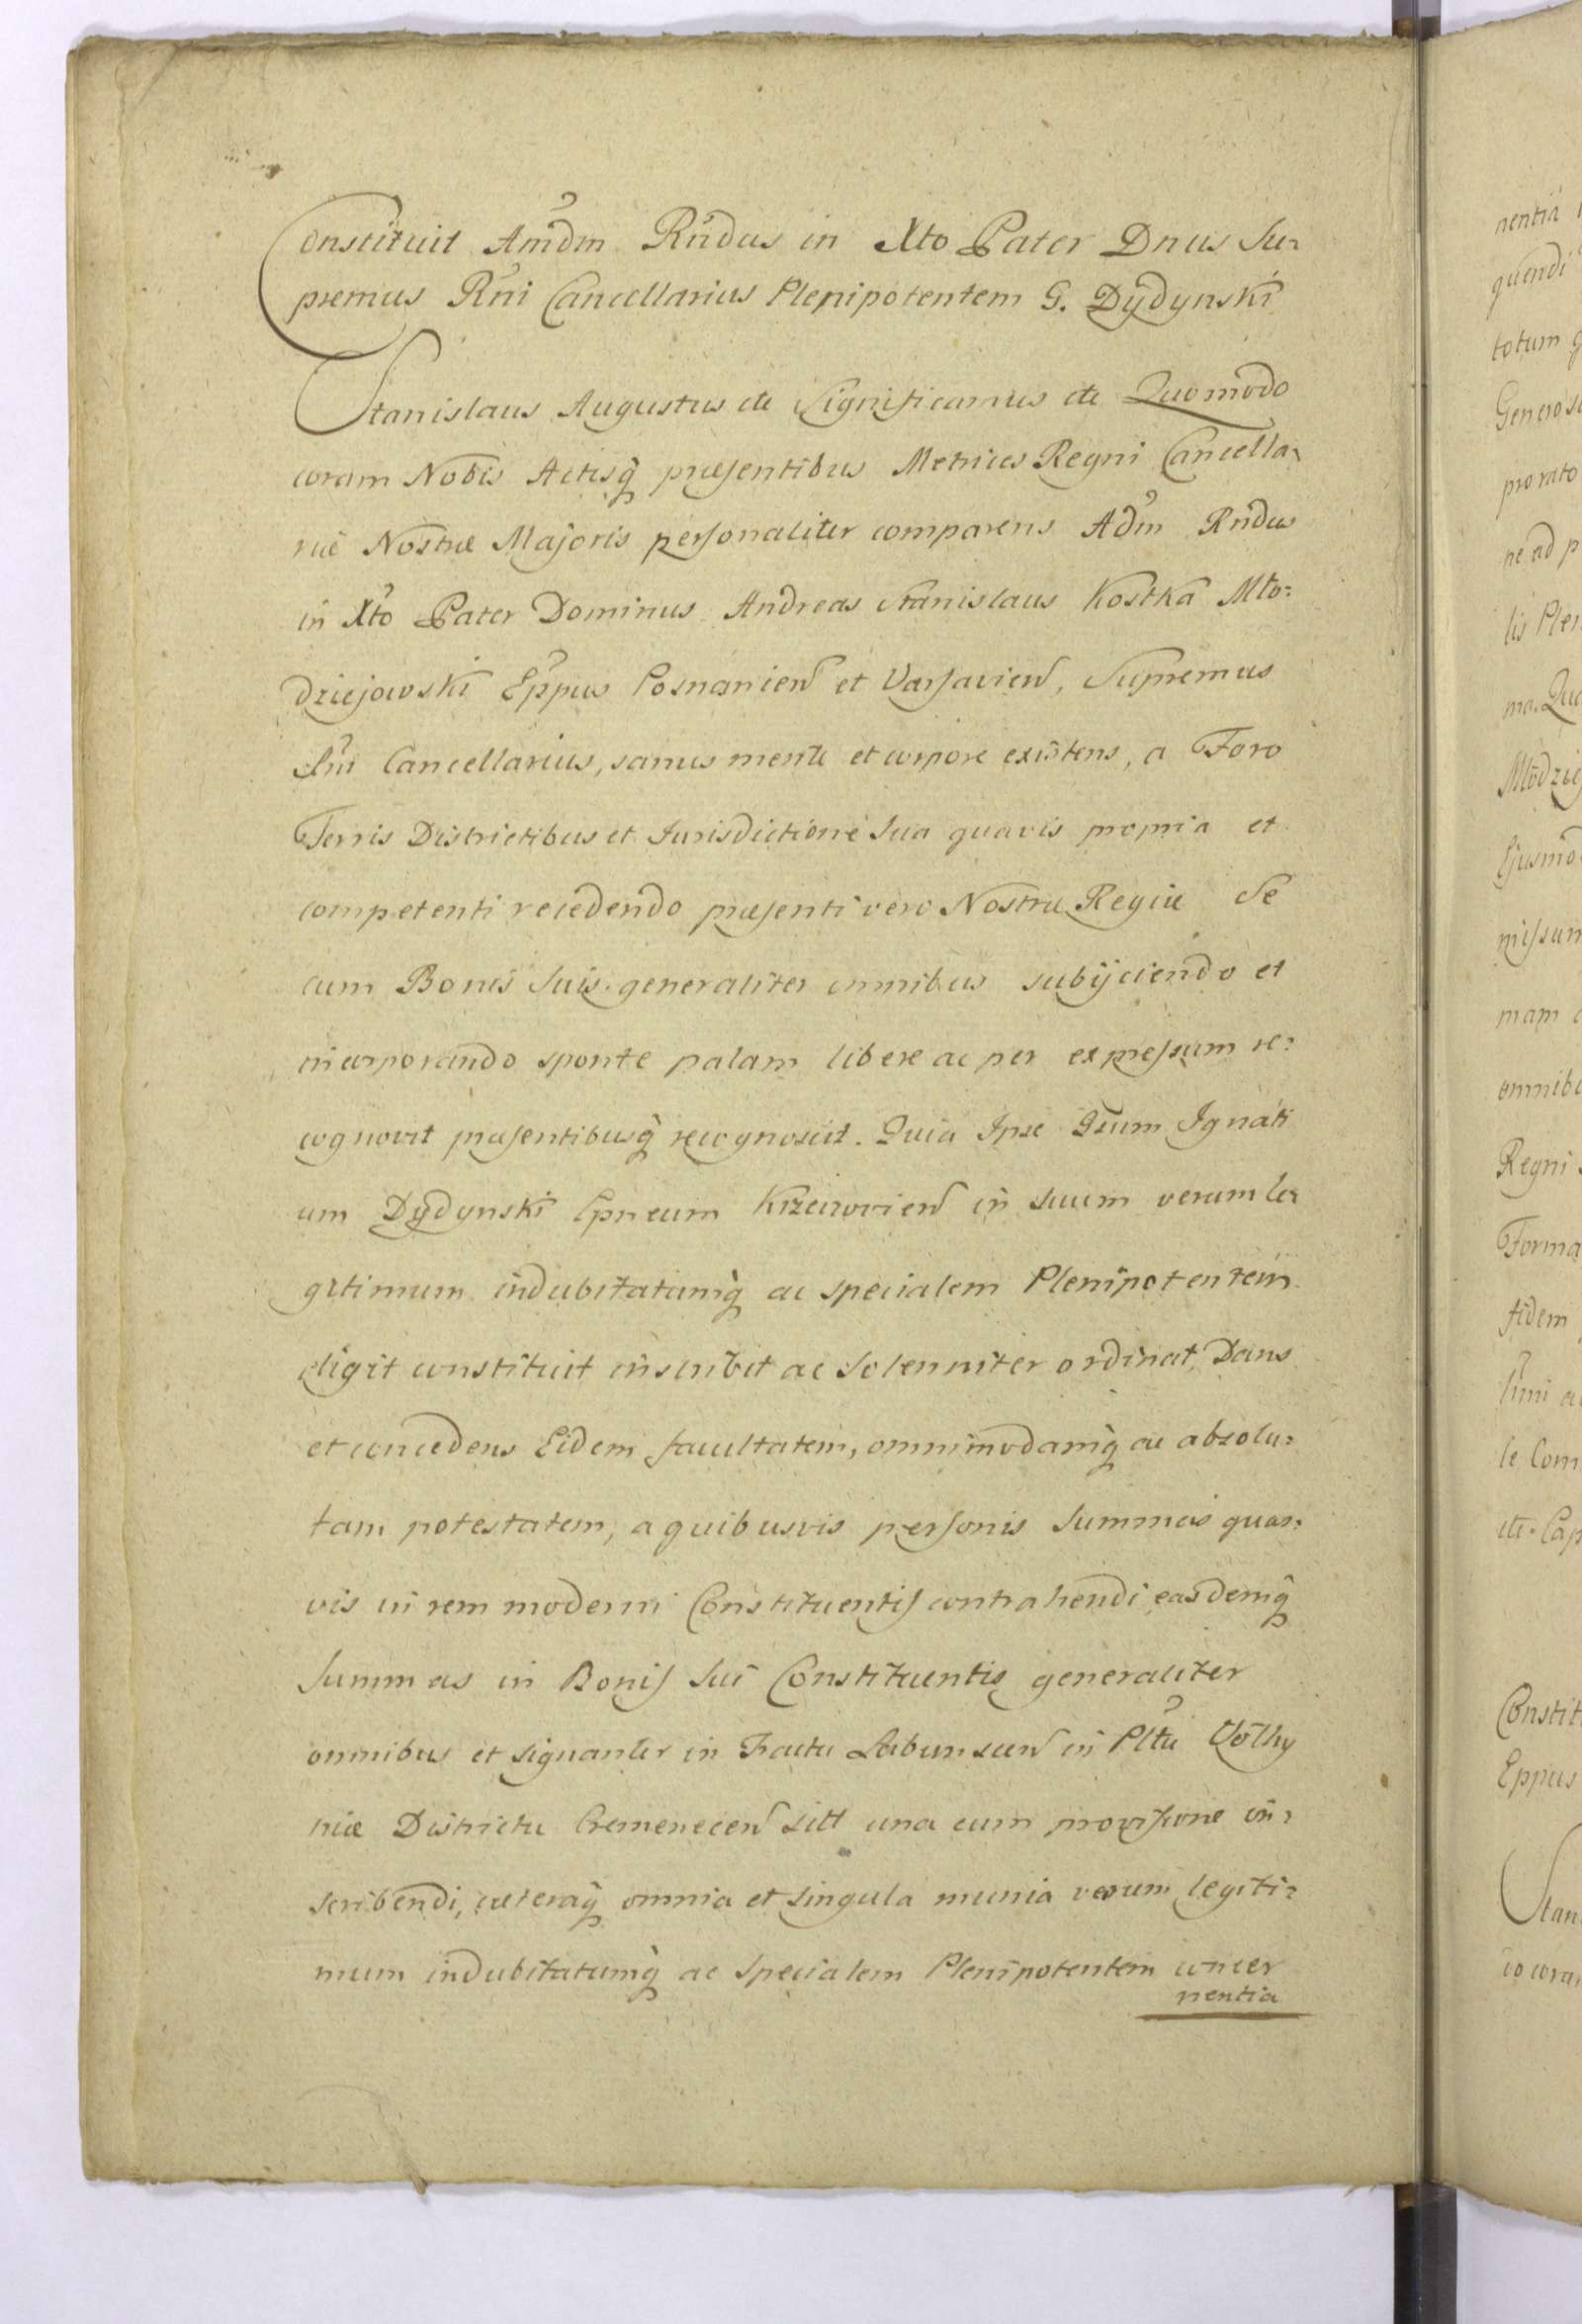 Constituit Amdm Rndus in Xto Pater Dnus Su=
premus Rni Cancellarius Plenipotentem G. Dydynski
Stanislaus Augustus etc Significamus etc Quomodo
coram Nobis Actisq̀ præsentibus Metrices Regni Cancella=
riæ Nostræ Majoris personaliter comparens Adm Rndus
in Xto Pater Dominus Andreas Stanislaus Kostka Mło=
dziejowski Eppus Posnanien et Varsavien, Supremus
Rni Cancellarius, sanus mente et corpore existens, a Foro
Terris Districtibus et Jurisdictione Sua quavis propria et
competenti recedendo præsenti vero Nostræ Regiæ Se
cum Bonis Suis generaliter omnibus subijciendo et
incorporando sponte palam libere ac per expressum re=
cognovit præsentibusq̀ recognoscit. Quia Ipse Gsum Ignati
um Dydynski Ipneum Krzeczovien in suum verum le=
gitimum indubitatumq̀ ac specialem Plenipotentem
eligit constituit inscribit ac Solenniter ordinat, Dans
et concedens Eidem facultatem, omnimodamq̀ ac absolu=
tam potestatem, a quibusvis personis Summas quas=
vis in rem moderni Constituentis contrahendi easdemq̀
Summas in Bonis Sui Constituentis generaliter
omnibus et signanter in Tractu Labunscen in Pltu Volhy
niæ Districtu Cremenecen sitt una cum provisione in=
scribendi, cæteraq̀ omnia et singula munia verum legiti=
mum indubitatumq̀ ac specialem Plenipotentem concer
nentia
nentia
quendi
totum
Generos
pro rato
ne ad p
lis Plen
ma. Quo
Młodziej
Ejusmod
missum
mam
omnibu
Regni
Forma
fidem
le Com
etc. Cap
Constit
Eppus
Stan
do coram